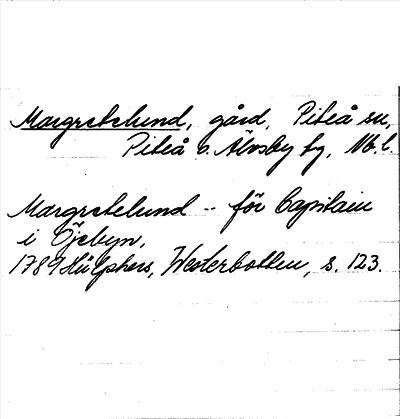 Margretelund, gård, Piteå sn,
Piteå o. Älvsby tg, Nb.l.
Margretelund -- för Capitain
i Öjebyn,
1789 Hülphers, Westerbotten, s. 123.